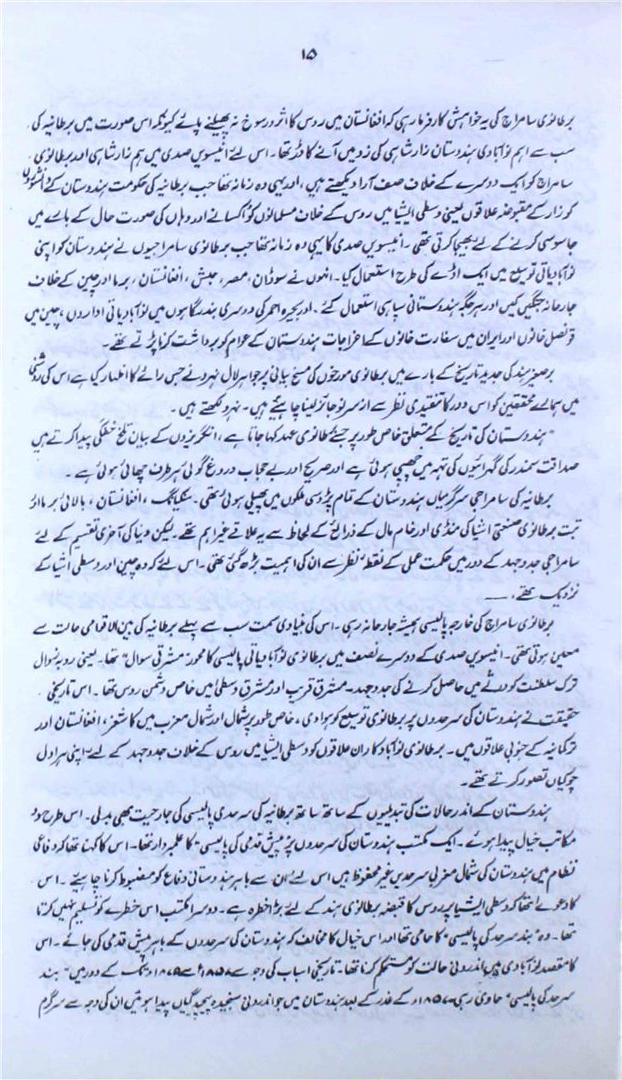 ۱۵
برطانوی سامراج کی یہ خواہش کارفرما رہی کہ افغانستان میں روس کا اثر و رسوخ نہ پھیلنے پائے کیونکہ اس صورت میں برطانیہ کی
سب سے اہم نوآبادی ہندوستان زار شاہی کی زد میں آنے کا ڈر تھا۔ اس لئے انیسویں صدی میں ہم زار شاہی اور برطانوی
سامراج کو ایک دوسرے کے خلاف صف آرا دیکھتے ہیں، اور یہی وہ زمانہ تھا جب برطانیہ کی حکومت ہندوستان کے
کو زار کے مقبوضہ علاقوں یعنی وسطی ایشیا میں روس کے خلاف مسلمانوں کو اکسانے اور وہاں کی صورت حال کے بارے میں
جاسوسی کرنے کے لئے بھیجا کرتی تھی۔ انیسویں صدی کا یہی وہ زمانہ تھا جب برطانوی سامراجیوں نے ہندوستان کو اپنی
نوآبادیاتی توسیع میں ایک اڈے کی طرح استعمال کیا۔ انہوں نے سوڈان، مصر، حبش، افغانستان، برما اور چین کے خلاف
جارحانہ جنگیں کیں اور ہر جگہ ہندوستانی سپاہی استعمال کئے۔ اور بحیرہ احمر کی دوسری بندرگاہوں میں نوآبادیاتی اداروں، چین میں
قونصل خانوں اور ایران میں سفارت خانوں کے اخراجات ہندوستان کے عوام کو برداشت کرنا پڑتے تھے۔
برصغیر ہند کی جدید تاریخ کے بارے میں برطانوی مورخوں کی مسخ بیانی پر جواہر لال نہرو نے جس رائے کا اظہار کیا ہے اس کی روشنی
میں ہمارے محققین کو اس دور کا تنقیدی نظر سے از سر نو جائزہ لینا چاہئیے ہیں۔ نہرو لکھتے ہیں۔
"ہندوستان کی تاریخ کے متعلق خاص طور پر جسے برطانوی عہد کہا جاتا ہے، انگریزوں کے بیان تلخ خفگی پیدا کرتے ہیں
صداقت سمندر کی گہرائیوں کی تہہ میں چھپی ہوئی ہے اور صریح اور بے حجاب دروغ گوئی ہر طرف چھائی ہوئی ہے۔
برطانیہ کی سامراجی سرگرمیاں ہندوستان کے تمام پڑوسی ملکوں میں پھیلی ہوئی تھی۔ سنکیانگ، افغانستان، بالائی برما اور
تبت برطانوی صنعتی اشیا کی منڈی اور خام مال کے ذرائع کے لحاظ سے یہ علاقے غیر اہم تھے۔ لیکن دنیا کی آخری تقسیم کے لئے
سامراجی جدوجہد کے دور میں حکمت عملی کے نقطہ نظر سے ان کی اہمیت بڑھ گئی تھی۔ اس لئے کہ وہ چین اور وسطی ایشیا کے
نزدیک تھے۔
برطانوی سامراج کی خارجہ پالیسی ہمیشہ جارحانہ رہی۔ اس کی بنیادی سمت سب سے پہلے برطانیہ کی بین الاقوامی حالت سے
معین ہوتی تھی۔ انیسویں صدی کے دوسرے نصف میں برطانوی نوآبادیاتی پالیسی کا محور "مشرقی سوال" تھا۔ یعنی روبہ زوال
ترک سلطنت کو ورثے میں حاصل کرنے کی جدوجہد۔ مشرق قریب اور مشرق وسطیٰ میں خاص دشمن روس تھا۔ اس تاریخی
حقیقت نے ہندوستان کی سرحدوں پر برطانوی توسیع کو ہوا دی، خاص طور پر شمال اور شمال مغرب میں کاشغر، افغانستان اور
ترکمانیہ کے جنوبی علاقوں میں۔ برطانوی نوآبادکار ان علاقوں کو وسطی ایشیا میں روس کے خلاف جدوجہد کے لئے "اپنی ہراول
چوکیاں تصور کرتے تھے۔
ہندوستان کے اندر حالات کی تبدیلیوں کے ساتھ ساتھ برطانیہ کی سرحدی پالیسی کی جارحیت بھی بدلی۔ اس طرح دو
مکاتب خیال پیدا ہوئے۔ ایک مکتب ہندوستان کی سرحدوں پر "پیش قدمی کی پالیسی" کا علمبردار تھا۔ اس کا کہنا تھا کہ دفاعی
نظام میں ہندوستان کی شمال مغربی سرحدیں غیر محفوظ ہیں اس لئے ان سے باہر ہندوستانی دفاع کو مضبوط کرنا چاہئیے۔ اس
کا دعوےٰ تھا کہ وسطی ایشیا پر روس کا قبضہ برطانوی ہند کے لئے بڑا خطرہ ہے۔ دوسرا مکتب اس خطرے کو تسلیم نہیں کرتا
تھا۔ وہ "بند سرحد کی پالیسی" کا حامی تھا اور اس خیال کا مخالف کہ ہندوستان کی سرحدوں کے باہر پیش قدمی کی جائے۔ اس
کا مقصد نوآبادی میں اندرونی حالت کو مستحکم کرنا تھا۔ تاریخی اسباب کی وجہ سے ۱۸۵۸ء سے ۱۸۷۵ء تک کے دور میں "بند
سرحد کی پالیسی" حاوی رہی۔ ۱۸۵۷ء کے غدر کے بعد ہندوستان میں جو اندرونی سنجیدہ پیچیدگیاں پیدا ہوئیں ان کی وجہ سے سرگرم